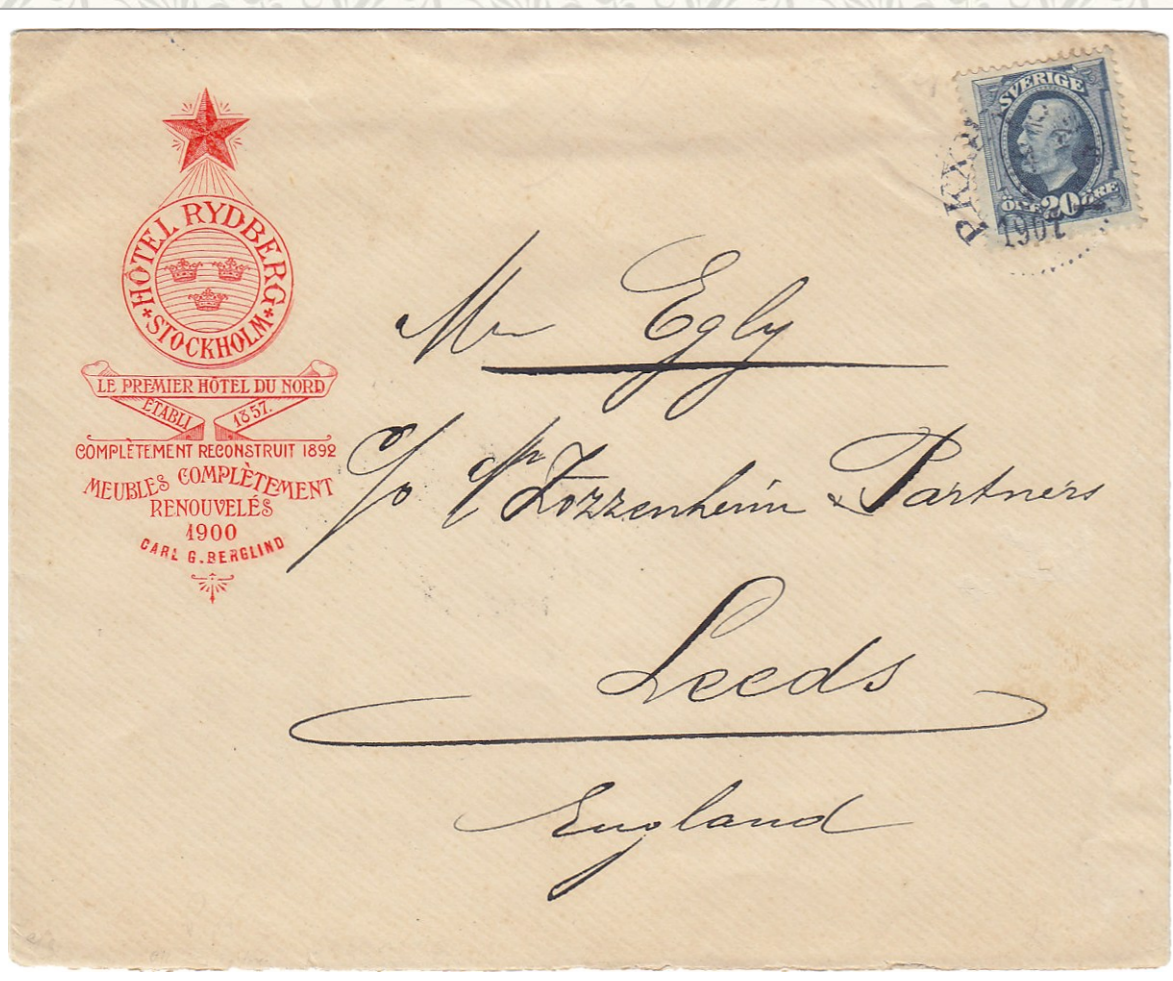 HÔTEL RYDBERG
STOCKHOLM
LE PREMIER HÔTEL DU NORD
ETABLI 1857.
COMPLÈTEMENT RECONSTRUIT 1892
MEUBLES COMPLÈTEMENT
RENOUVELÉS
1900
CARL G. BERGLIND
SVERIGE
ÖRE 20 ÖRE
PKXP
1901
Mr Egly
c/o Mr Zozzenheim & Partners
Leeds
England